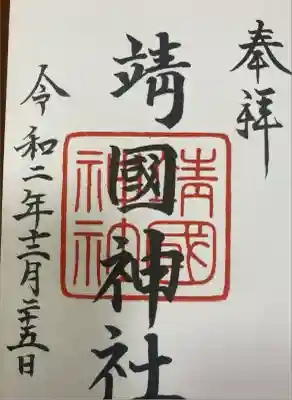 奉拝
靖國神社
靖國神社
令和二年十二月二十五日